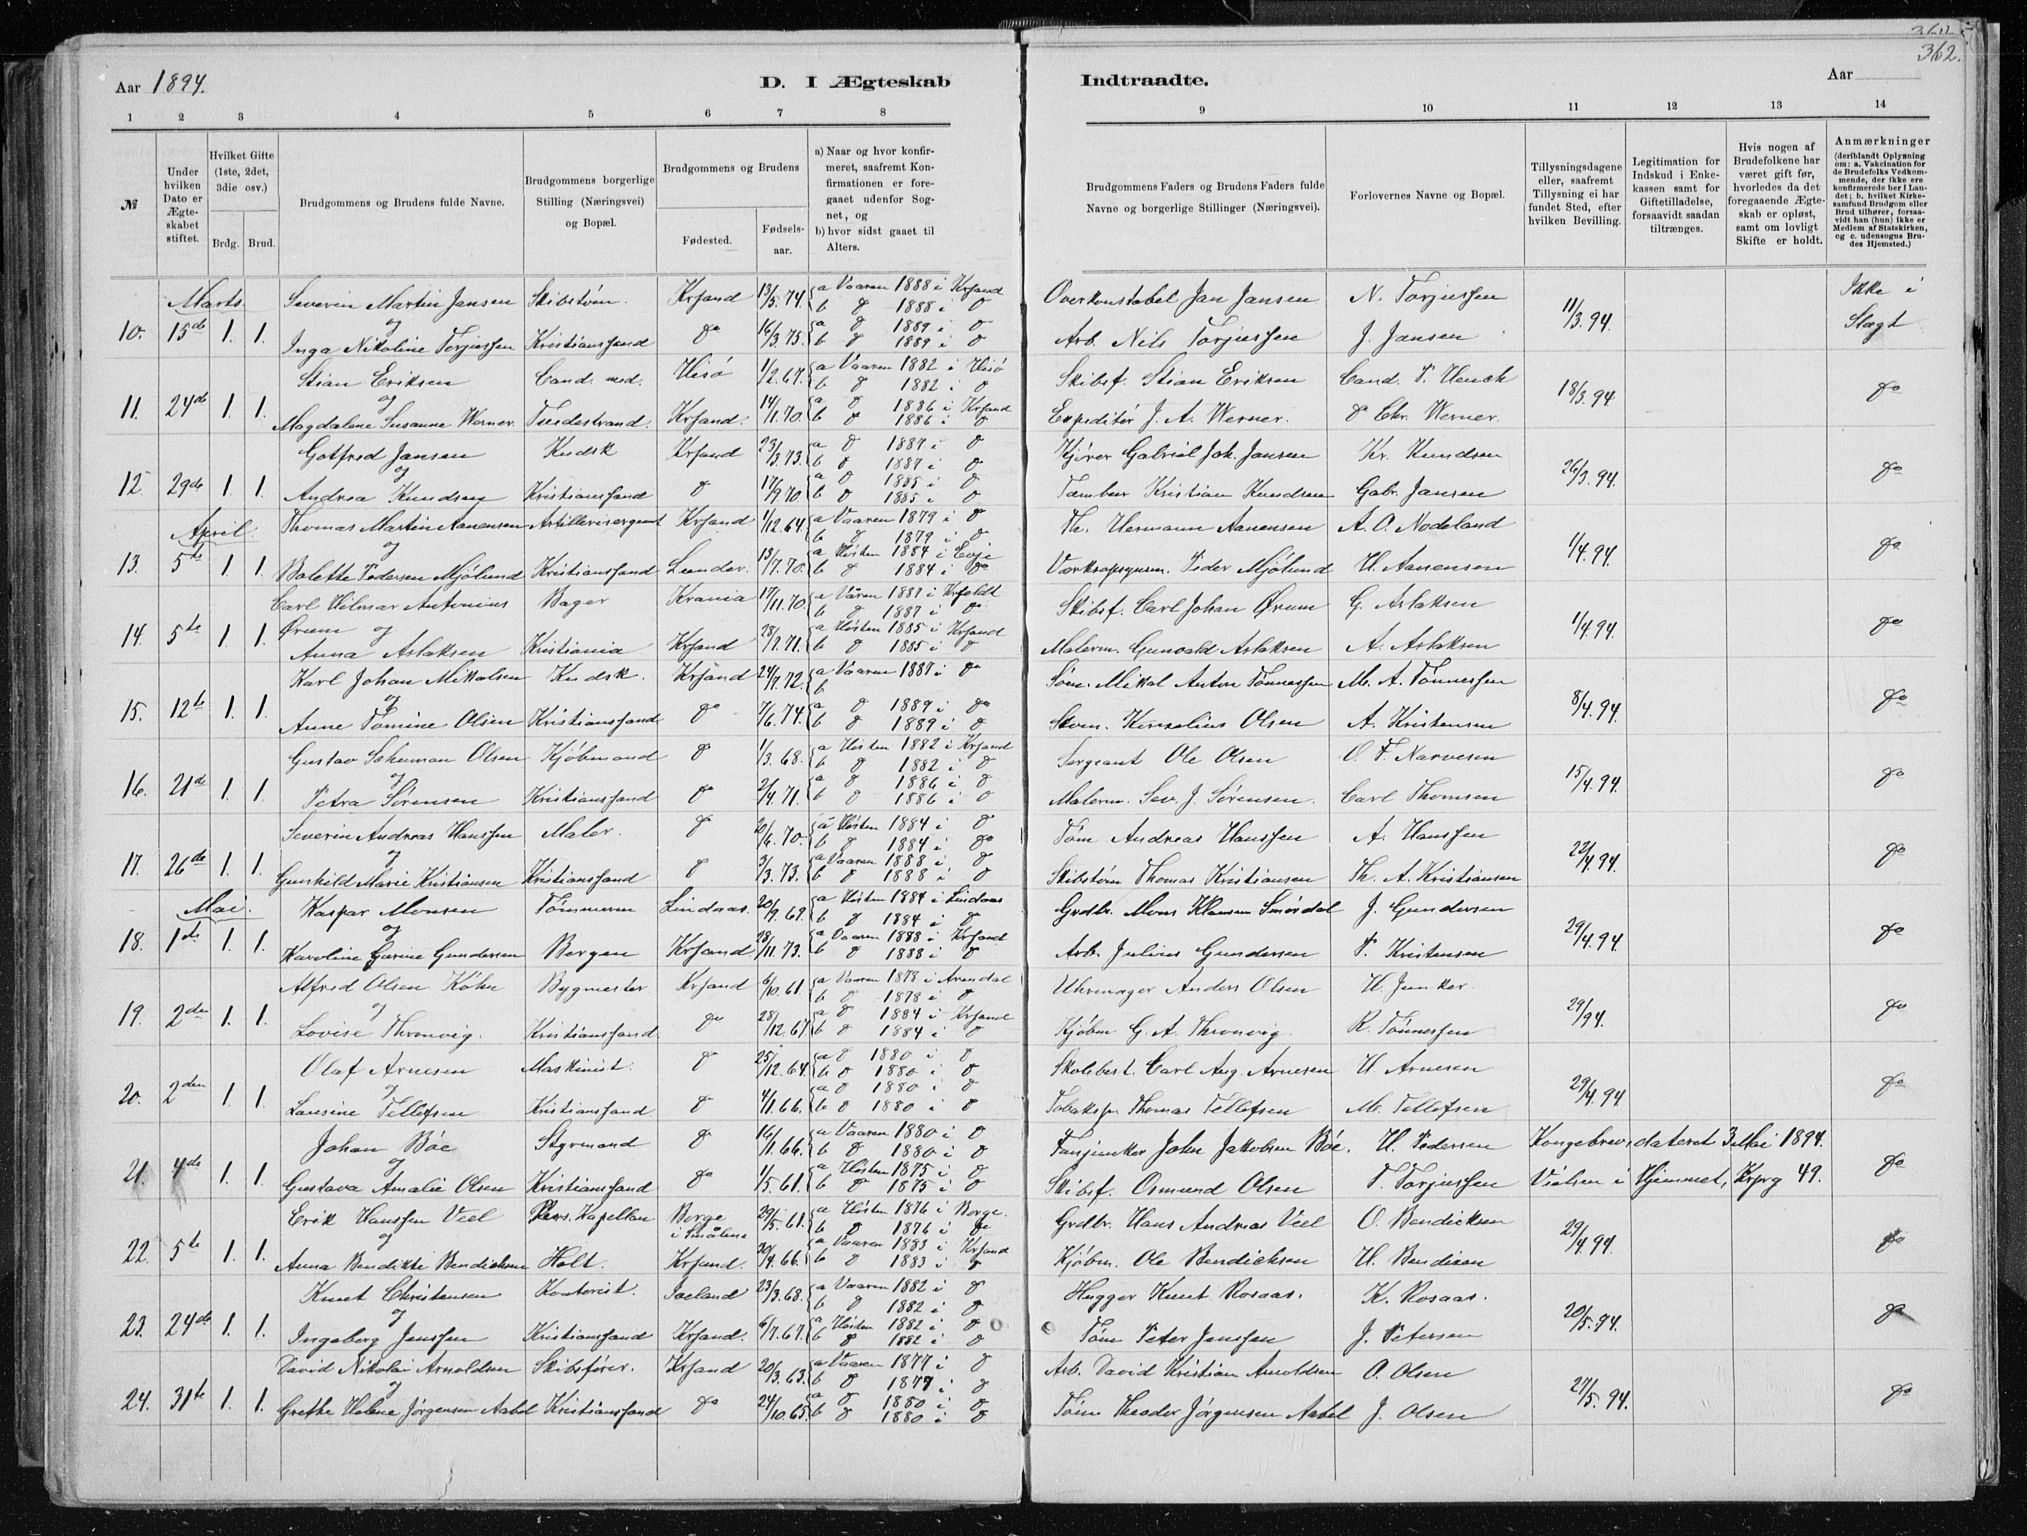 362.
Aar 1894.
D. I Ægteskab Indtraadte.
Aar
1 2 3 4 5 6 7 8 9 10 11 12 13 14
№
Under hvilken Dato er Ægteskabet stiftet.
Hvilket Gifte (1ste, 2det, 3die osv.)
Brdg. Brud.
Brudgommens og Brudens fulde Navne.
Brudgommens borgerlige Stilling (Næringsvei) og Bopæl.
Brudgommens og Brudens
Fødested. Fødselsaar.
a) Naar og hvor konfirmeret, saafremt Konfirmationen er foregaaet udenfor Sognet, og
b) hvor sidst gaaet til Alters.
Brudgommens Faders og Brudens Faders fulde Navne og borgerlige Stillinger (Næringsvei).
Forlovernes Navne og Bopæl.
Tillysningsdagene eller, saafremt Tillysning ei har fundet Sted, efter hvilken Bevilling.
Legitimation for Indskud i Enkekassen samt for Giftetilladelse, forsaavidt saadan tiltrænges.
Hvis nogen af Brudefolkene har været gift før, hvorledes da det foregaaende Ægteskab er opløst, samt om lovligt Skifte er holdt.
Anmærkninger (deriblandt Oplysning om: a. Vakcination for de Brudefolks Vedkommende, der ikke ere konfirmerede her i Landet; b. hvilket Kirkesamfund Brudgom eller Brud tilhører, forsaavidt han (hun) ikke er Medlem af Statskirken, og c. udensogns Brudes Hjemsted.)
Marts Severin Martin Jansen Skibstøm. Krsand 13/5.74 a Vaaren 1888 i Krsand b do 1888 i do Overkonstabel Jan Jansen N. Torjussen 11/3.94. Ikke i Slægt
10. 15de 1. 1. og Inga Nikoline Torjussen Kristianssand do 16/3.75. a do 1889 i do b do 1889 i do Arb. Nils Torjussen J. Jansen
Stian Eriksen Cand. med. Hisø 1/2.67. a Vaaren 1882 i Hisø b do 1882 i do Skibsf. Stian Eriksen Cand. T. Henck 18/3.94 do
11. 24de 1. 1. og Magdalene Susanne Werner Tvedestrand. Krsand. 14/11.70. a do 1886 i Krsand b do 1886 i do Expeditør J. A. Werner. do Chr. Werner.
Gotfred Jansen Kudsk Krsand 23/3.73. a do 1887 i do b do 1887 i do Kjører Gabriel Joh. Jansen Kr. Knudsen 26/3.94. do
12 29de 1. 1. og Andrea Knudsen Kristianssand do 17/9.70 a do 1885 i do b do 1885 i do Tambur Kristian Knudsen Gabr. Jansen
April. Thomas Martin Aanensen Artillerisergent Krsand 1/12.64 a Vaaren 1879 i do b do 1879 i do Th. Hermann Aanensen A. O. Nodeland 1/4.94. do
13. 5te 1. 1. og Bolette Pedersen Mjølund Kristianssand 13/7.70. a Høsten 1884 i Evje b do 1884 i do Værksopsynsm. Peder Mjølund H. Aanensen
Carl Hilmar Antonius Bager Krania 17/11.70 a Vaaren 1887 i b do 1887 i do Skibsf. Carl Johan Ørum G. Aslaksen 1/4.94. do
14. 5te 1. 1. Ørum og Anna Aslaksen Kristiania Krsand 28/7.71. a Høsten 1885 i Krsand b do 1885 i do Malerm. Gunvald Aslaksen A. Aslaksen
Karl Johan Mikalsen Kudsk. Krsand 24/7.72. a Vaaren 1887 i do b Søm. Mikal Anton Tønnessen M. A. Tønnessen 8/4.94. do
15. 12te 1. 1. og Anne Tomine Olsen Kristianssand do 7/6.74. a do 1889 i do b do 1889 i do Kornelius Olsen A. Kristensen
Gustav Schuman Olsen Kjøbmand do 1/3.68. a Høsten 1882 i Krsand b do 1882 i do Sergeant Ole Olsen O. F. Narvesen 15/4.94. do
16. 21de 1. 1. og Petra Sørensen Kristianssand do 2/4.71. a do 1886 i do b do 1886 i do Malerm. Sev. J. Sørensen. Carl Thomsen
Severin Andreas Hanssen Maler. do 20/6.70. a Høsten 1884 i do b do 1884 i do Tøm Andreas Hanssen A. Hanssen 22/4.94. do
17. 26de 1. 1. og Gunhild Marie Kristiansen Kristianssand do 3/3.73. a Vaaren 1888 i do b do 1888 i do Skibstøm Thomas Kristiansen Th. A. Kristiansen
Mai. Kaspar Monsen Tømmerm Lindaas. 20/9.69. a Høsten 1884 i Lindaas b do 1884 i do Grdbr. Mons Klausen Smørdal J. Gundersen 29/4.94. do
18. 1ste 1. 1. og Karoline Gurine Gundersen Bergen Krsand 28/11.73. a Vaaren 1888 i Krsand b do 1888 i do Arb. Julius Gundersen T. Kristensen
Alfred Olsen Køhn Bygmester Krsand 6/10.61. a Vaaren 1878 i Arendal b do 1878 i do Uhrmager Anders Olsen H. Junker. 29/94. do
19. 2den 1. 1. og Lovise Thronvig. Kristianssand do 28/12.67. a do 1884 i Krsand b do 1884 i do Kjøbm G. A. Thronvig. R. Tønnessen
Olaf Arnesen Maskinist. do 25/12.64. a do 1880 i do b do 1880 i do Skolebest. Carl Aug. Arnesen H. Arnesen 29/4.94 do
20. 2den 1. 1. og Lausine Tellefsen Kristianssand do 4/11.66. a do 1880 i do b do 1880 i do Tobaksp. Thomas Tellefsen M. Tellefsen
Johan Bøe Styrmand do 16/11.66. a Vaaren 1880 i do b do 1880 i do Fanjunker John Jakobsen Bøe. H. Pedersen Kongebrev, dateret 3 Mai 1894. do
21. 4de 1. 1. og Gustava Amalie Olsen Kristianssand do 1/5.61. a Høsten 1875 i do b do 1875 i do Skibsf. Osmund Olsen T. Torjussen Vielsen i Hjemmet,
Erik Hanssen Veel Pers. Kapellan Borge i Smålene 29/5.61. a Høsten 1876 i Borge. b do 1876 i do Grdbr. Hans Andreas Veel O. Bendicksen 29/4.94. do
22. 5te 1. 1. og Anna Bendikte Bendicksen Holt. Krsand. 30/4.66. a Vaaren 1883 i Krsand b do 1883 i do Kjøbm. Ole Bendicksen H. Bendixen
Knut Christensen Kontorist. Iveland 23/3.68. a Vaaren 1882 i do b do 1882 i do Hugger Knut Rosaas. K. Rosaas. 20/5.94. do
23. 24de 1. 1. og Ingeborg Jenssen Kristianssand Krsand. 6/7.67. a Høsten 1882 i do b do 1882 i do Tøm Peter Jenssen J. Petersen
David Nikolai Arnoldsen Skibsfører. Krsand 20/3.63. a Vaaren 1877 i do b do 1877 i do Arb. David Kristian Arnoldsen O. Olsen 27/5.94. do
24. 31te 1. 1. og Grethe Helene Jørgensen Aabel Kristianssand do 24/10.65. a do 1880 i do b do 1880 i do Tøm Theodor Jørgensen Aabel J. Olsen